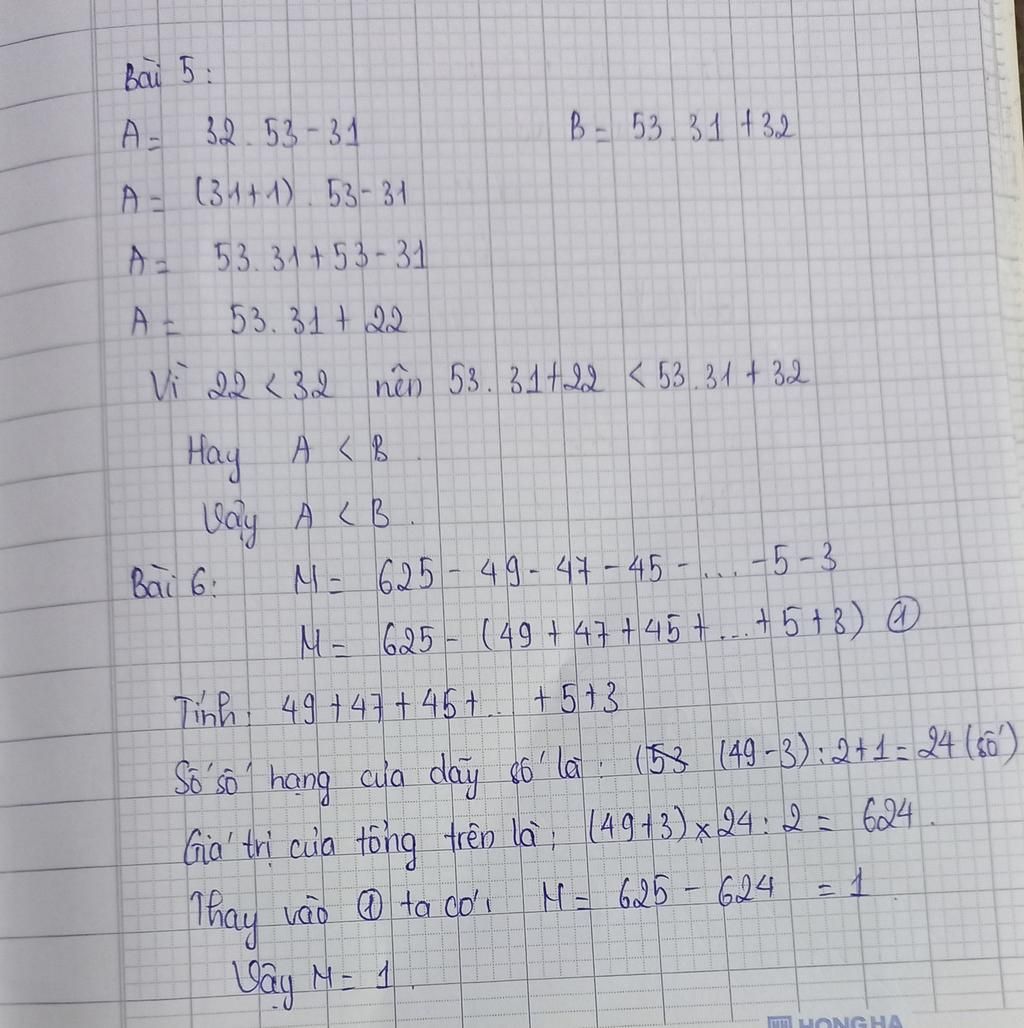 Bài 5:
A = 32.53-31 B = 53.31+32
A = (31+1).53-31
A = 53.31+53-31
A = 53.31+22
Vì 22 < 32 nên 53.31+22 < 53.31+32
Hay A < B.
Vậy A < B.
Bài 6: M = 625 - 49 - 47 - 45 - ... - 5 - 3
M = 625 - (49 + 47 + 45 + ... + 5 + 3) ①
Tính: 49 + 47 + 45 + ... + 5 + 3
Số số hạng của dãy số là: (49-3):2+1 = 24 (số)
Giá trị của tổng trên là: (49+3)×24:2 = 624.
Thay vào ① ta có: M = 625 - 624 = 1.
Vậy M = 1.
HONG HA